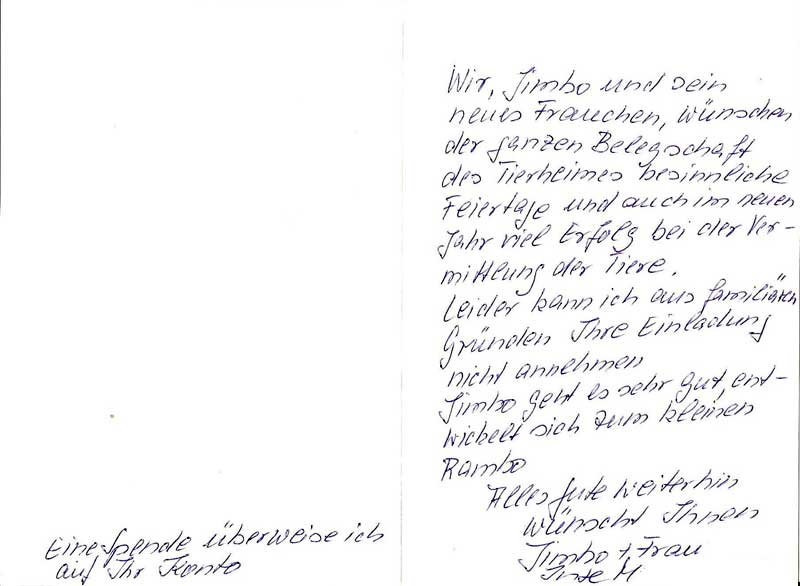 Wir, Jimbo und sein
neues Frauchen, wünschen
der ganzen Belegschaft
des Tierheimes besinnliche
Feiertage und auch im neuen
Jahr viel Erfolg bei der Ver-
mittlung der Tiere.
Leider kann ich aus familiären
Gründen Ihre Einladung
nicht annehmen
Jimbo geht es sehr gut, ent-
wickelt sich zum kleinen
Rambo
Alles gute weiterhin
wünscht Ihnen
Jimbo + Frau
M
Eine Spende überweise ich
auf Ihr Konto